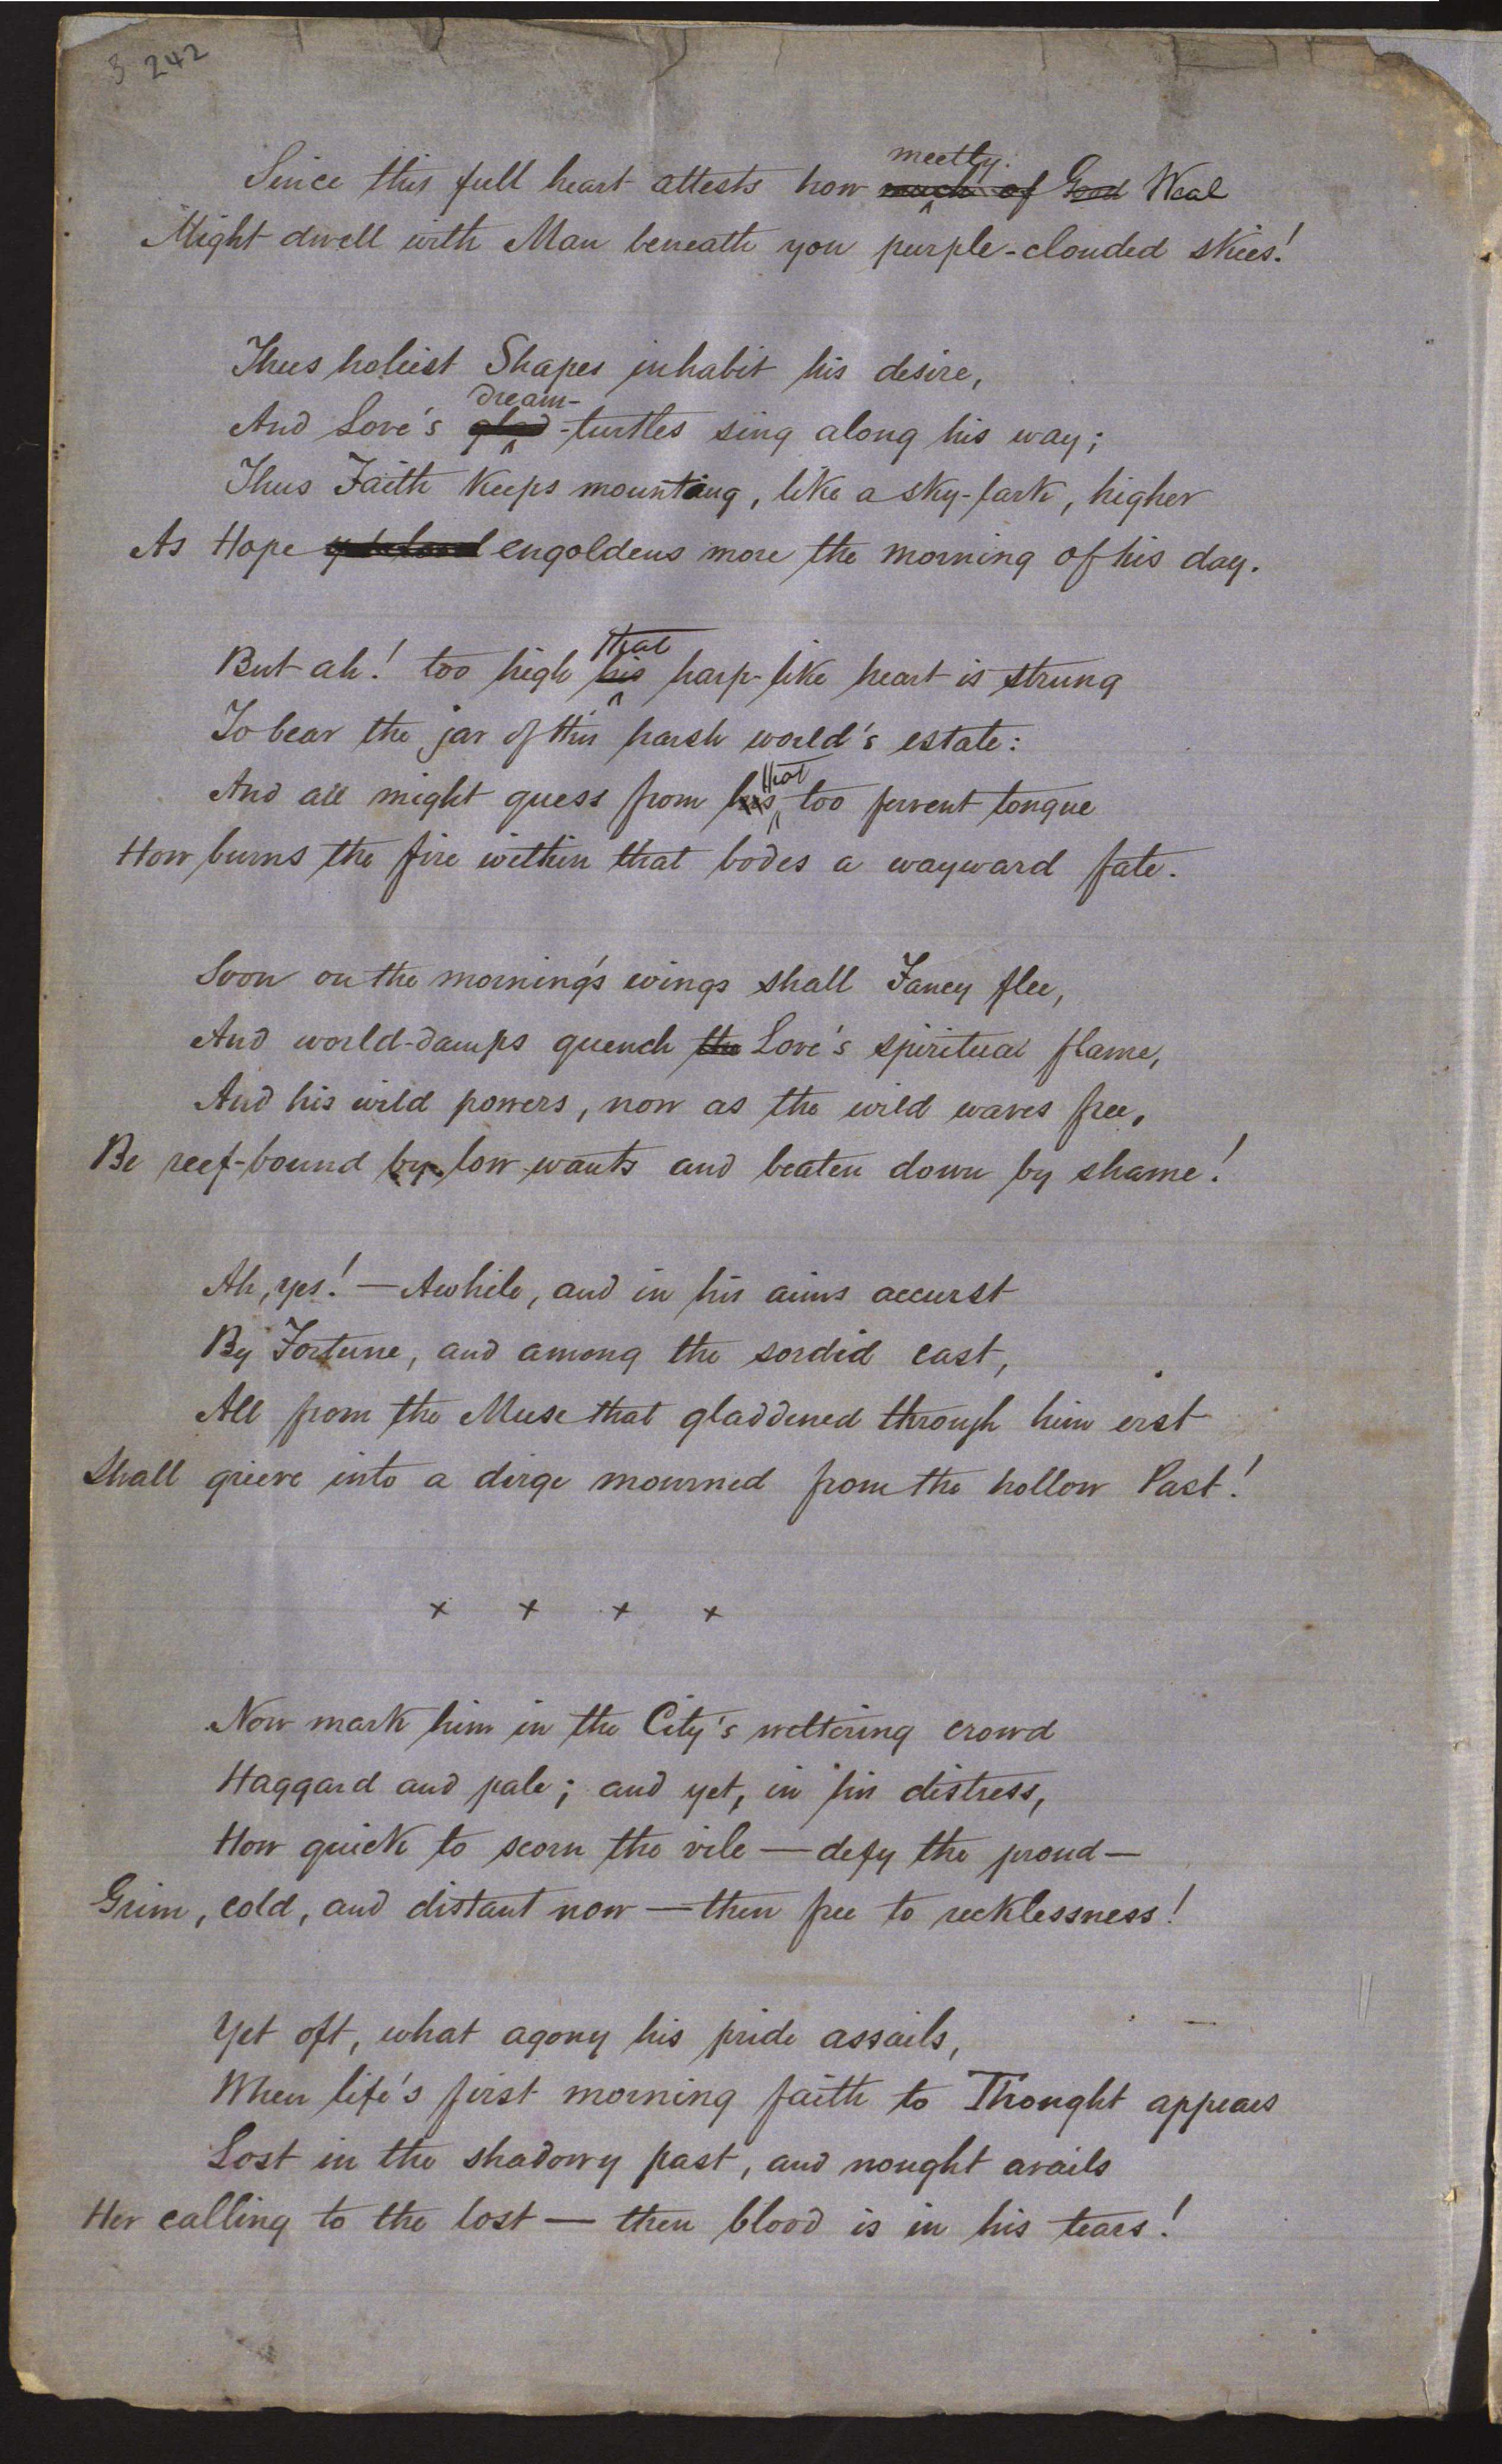 3 242
meetly
Since this full heart attests how much of Good Weal
Might dwell with Man beneath yon purple-clouded skies!
Thus holiest Shapes inhabit his desire,
dream-
And Love's glad-turtles sing along his way;
Thus Faith keeps mounting, like a sky-lark, higher
As Hope engoldens more the morning of his day.
that
But ah! too high his harp-like heart is strung
To bear the jar of this harsh world's estate:
that
And all might guess from his too fervent tongue
How burns the fire within that bodes a wayward fate.
Soon on the morning's wings shall Fancy flee,
And world-damps quench the Love's spiritual flame,
And his wild powers, now as the wild waves free,
Be reef-bound by low wants and beaten down by shame!
Ah, yes! — Awhile, and in his aims accurst
By Fortune, and among the sordid cast,
All from the Muse that gladdened through him erst
Shall grieve into a dirge mourned from the hollow Past!
x x x x
Now mark him in the City's weltering crowd
Haggard and pale; and yet, in his distress,
How quick to scorn the vile — defy the proud —
Grim, cold, and distant now — then free to recklessness!
Yet oft, what agony his pride assails,
When life's first morning faith to Thought appears
Lost in the shadowy past, and nought avails
Her calling to the lost — then blood is in his tears!